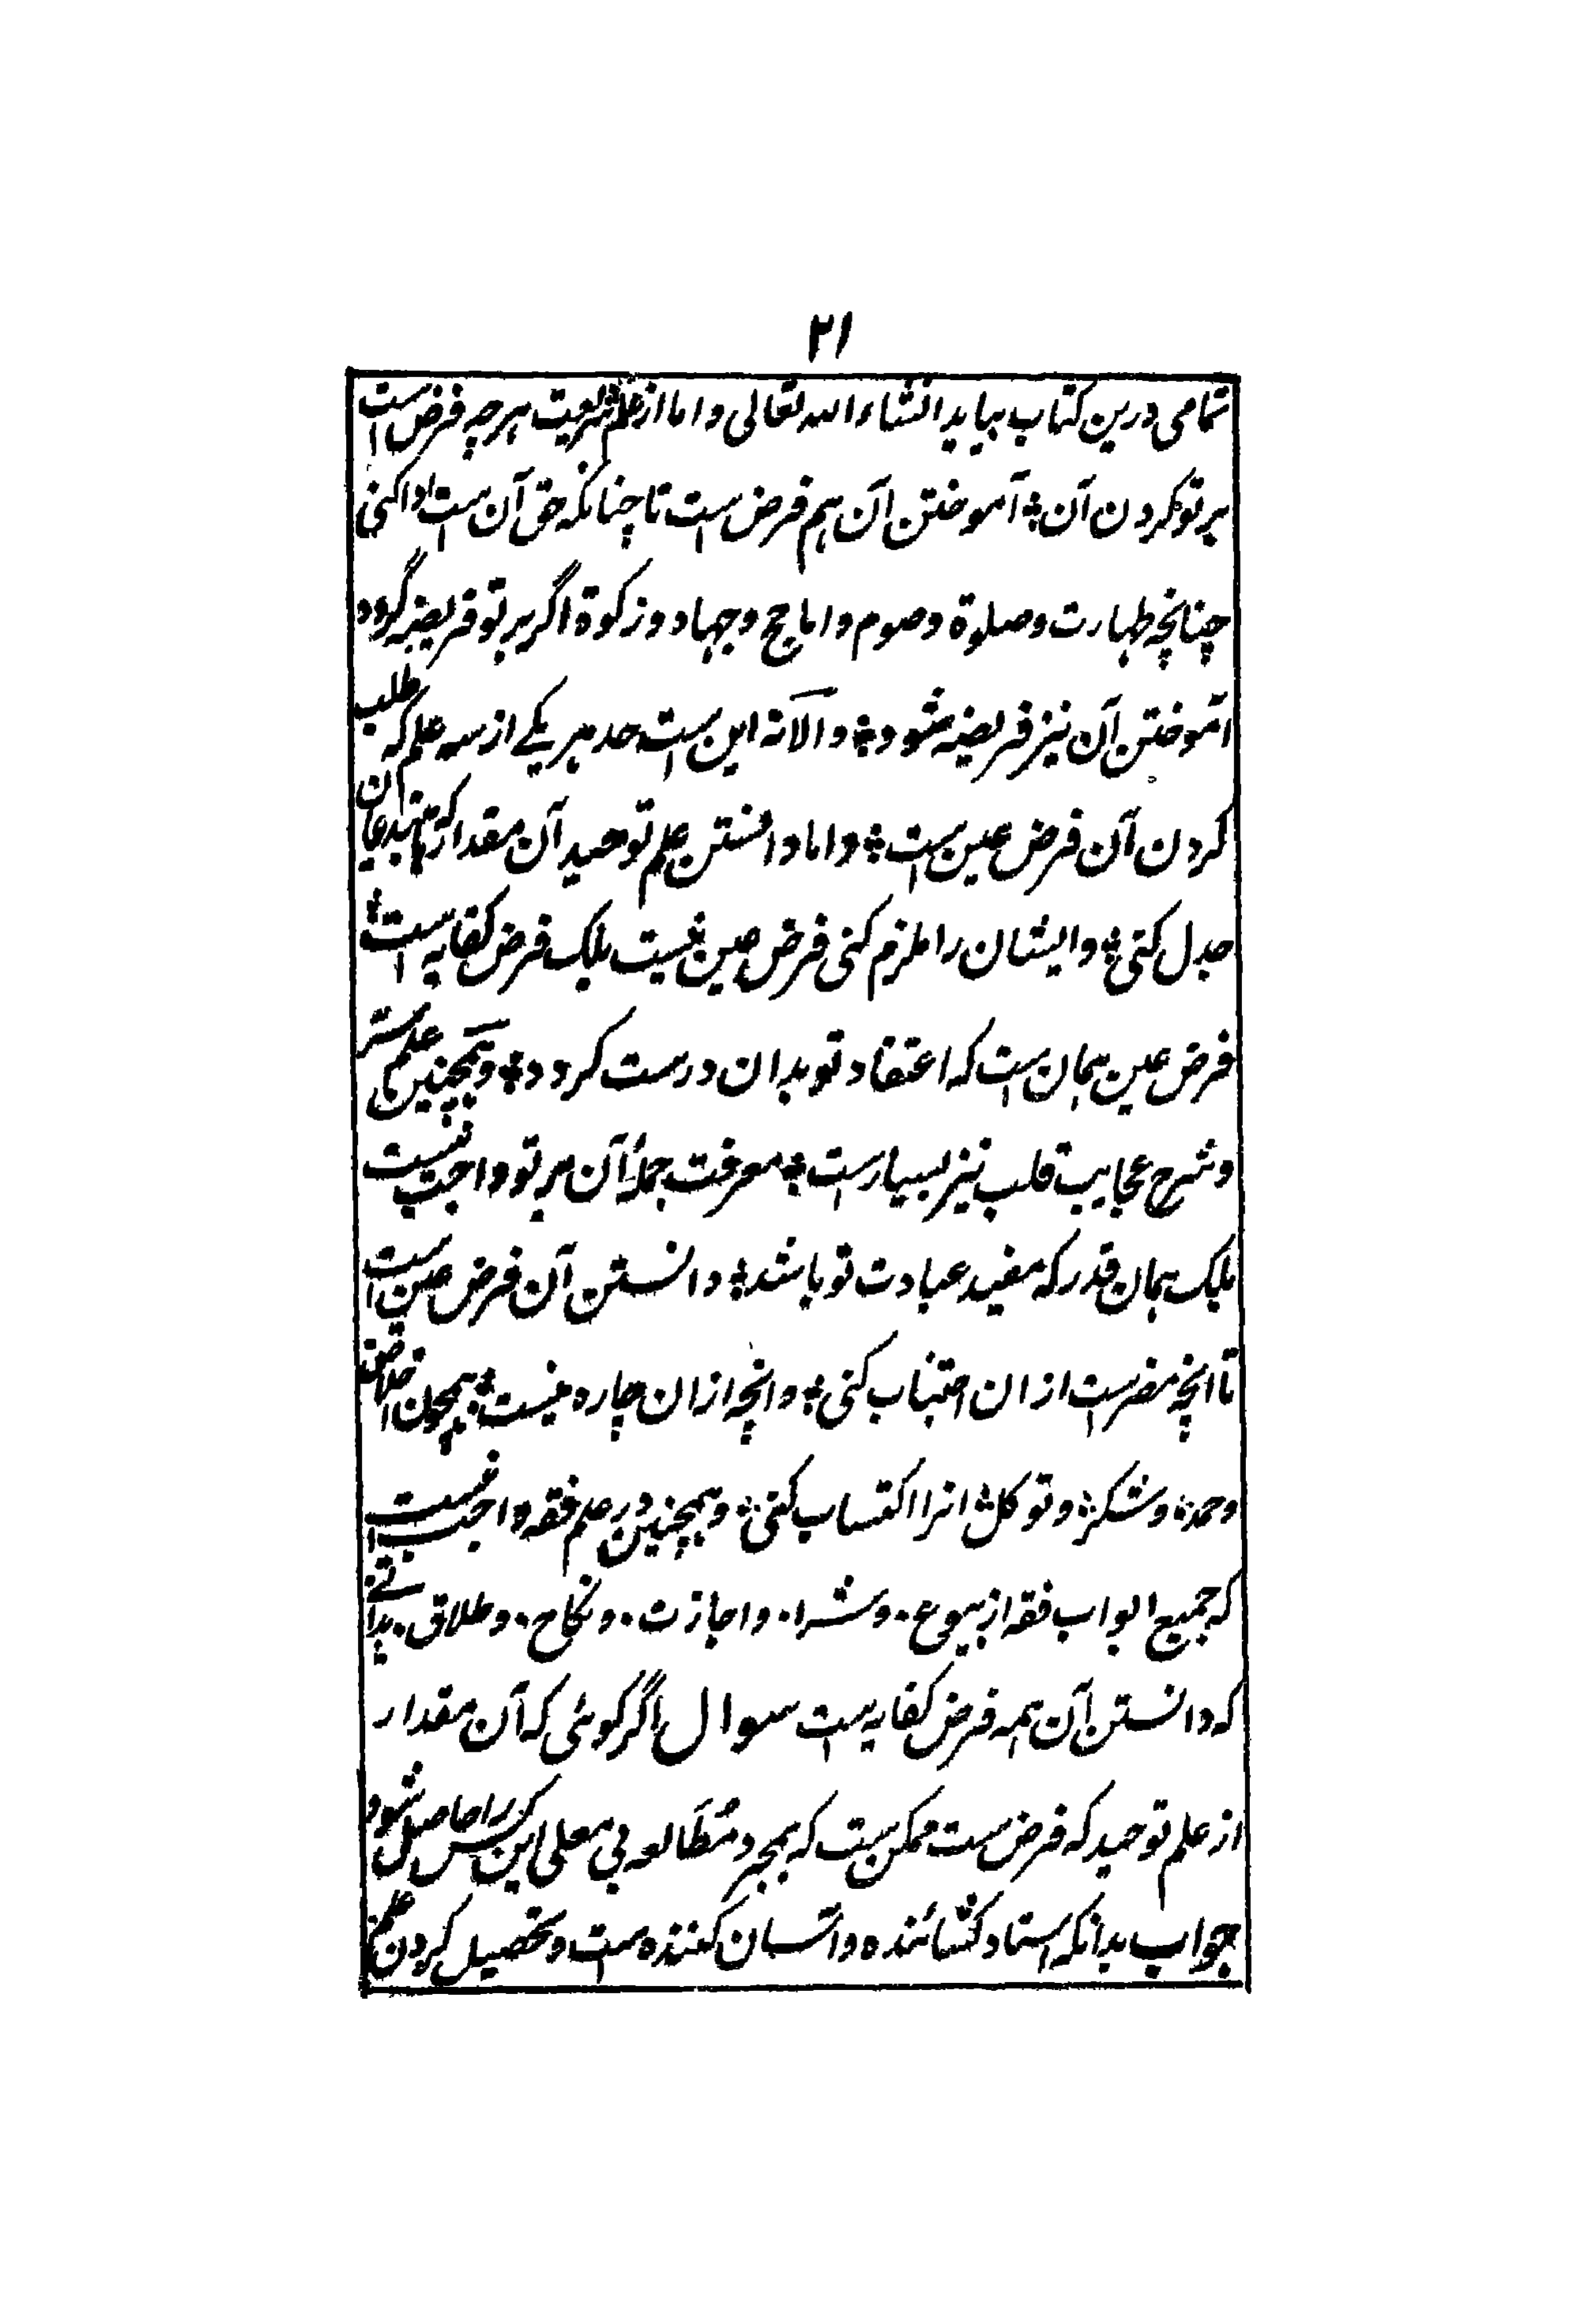 ۲۱
تمامی درین کتاب بیاید انشاء الله تعالی و اما از علم شریعت هر چه فرض است
بر تو کردن آن ؛ آموختن آن هم فرض است تا چنانکه حق آن است ادا کنی
چنانچه طهارت و صلوة و صوم و اما حج و جهاد و زکوة اگر بر تو فریضه گردد
آموختن آن نیز فریضه شود ؛ و الا نه این است حد هر یکے از سه علم که طلب
کردن آن فرض عین است ؛ و اما دانستن علم توحید آن مقدار که با مبتدعان
جدل کنی ؛ و ایشان را ملزم کنی فرض عین نیست بلکه فرض کفایه است ؛
فرض عین همان است که اعتقاد تو بدان درست کردد ؛ و همچنین علم ستر
و شرح عجایب قلب نیز بسیار است ؛ معرفت جملۀ آن بر تو واجب نیست
بلکه همان قدر که مفید عبادت تو باشد ؛ دانستن آن فرض عین است
تا انچه مضر است از ان اجتناب کنی ؛ و انچه از ان چاره نیست ؛ همچون اخلاص
و حمد ؛ و شکر ؛ و توکل ؛ انرا اکتساب کنی ؛ و همچنین در علم فقه واجب نیست
که جمیع ابواب فقه از بیوع . و شرا . و اجازت . و نکاح . و طلاق . بدانے
که دانستن آن همه فرض کفایه است سوال اگر کوئی که آن مقدار
از علم توحید که فرض ست ممکن ست که بمجرد مُطَالعه بی معلی این کس را حاصل شود
جواب بدانکه استاد کشائنده و آسان کننده است و تحصیل کردن علم